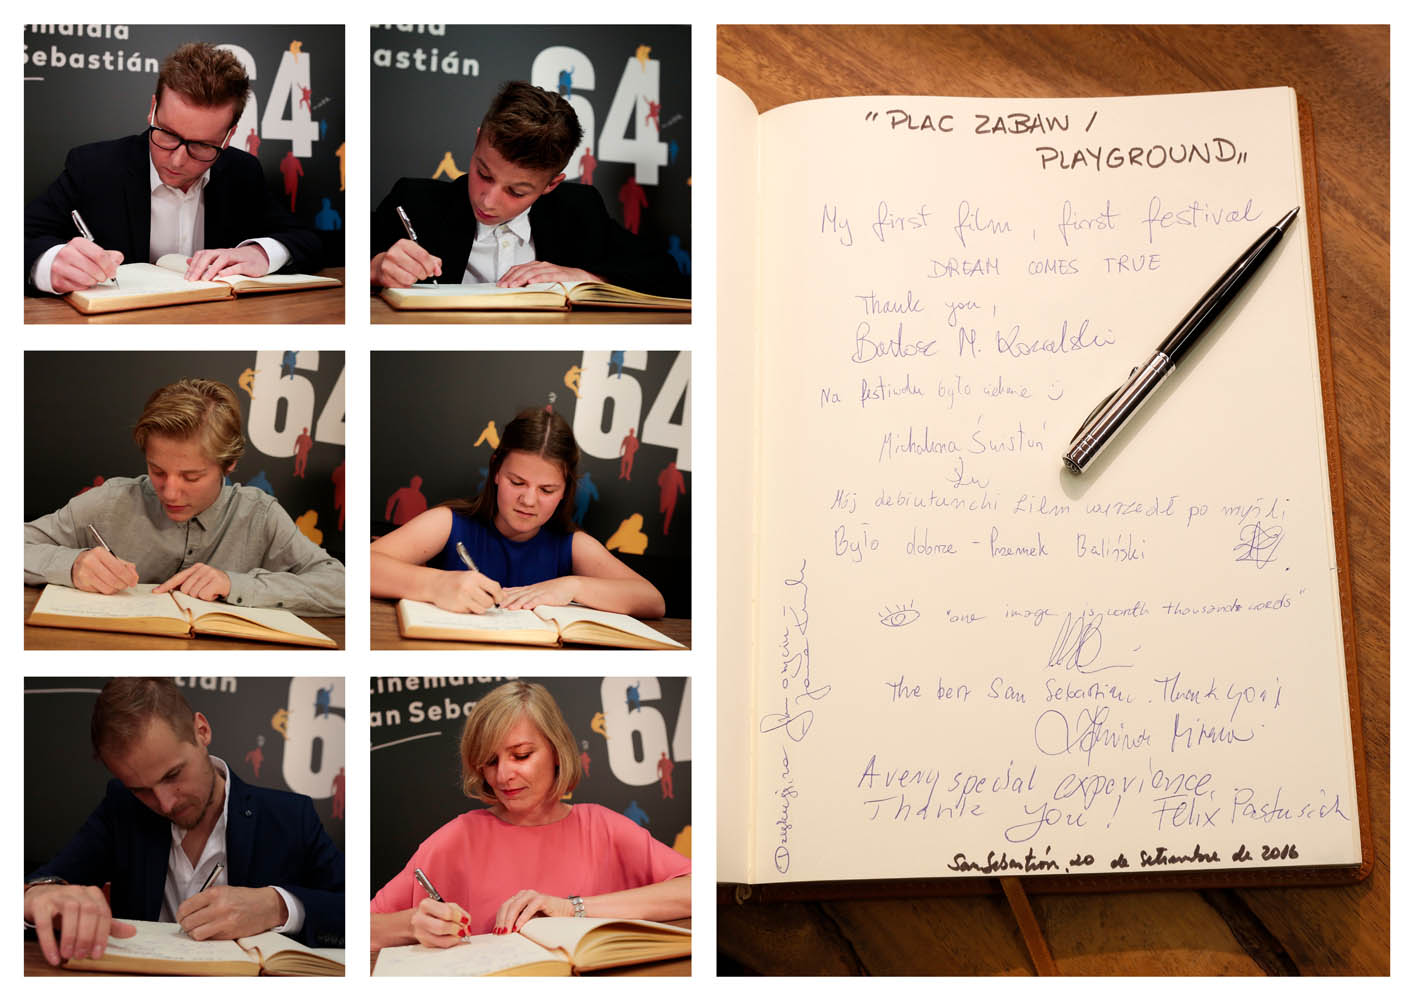 nemaldia
Sebastián
64
astián
64
64
64
tián
6
Zinemaldia
an Seba
64
"PLAC ZABAW /
PLAYGROUND"
My first film, first festival
DREAM COMES TRUE
Thank you,
Bartosz M. Kowalski
Na festiwalu było
Michalina Świstuń
Mój debiutancki film wyszedł po myśli
Było dobrze - Przemek Baliński
"one image is worth thousands words"
The best San Sebastian. Thank you!
A very special experience.
Thank you! Felix Pastusiak
San Sebastián, 20 de Setiembre de 2016